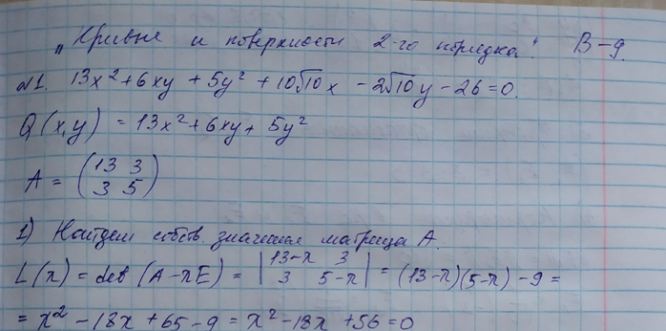 „Кривые и поверхности 2-го порядка". В-9.
№1. 13x² + 6xy + 5y² + 10√10x - 2√10y - 26 = 0.
Q(x,y) = 13x² + 6xy + 5y²
A = (13 3
3 5)
1) Найдем собств. значения матрицы A.
L(λ) = det(A - λE) = |13-λ 3
3 5-λ| = (13-λ)(5-λ) - 9 =
= λ² - 18λ + 65 - 9 = λ² - 18λ + 56 = 0